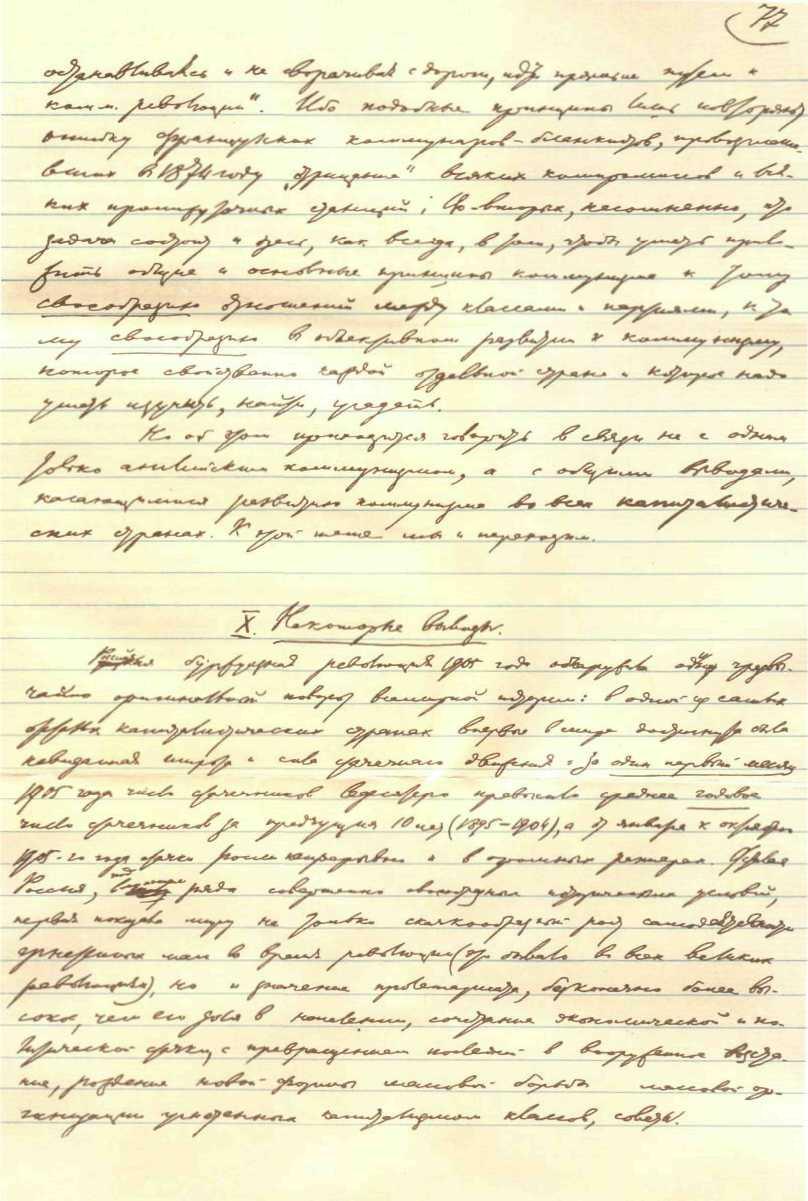 77
останавливаясь и не сворачивая с дороги, идти прямым путем к
комм. революции". Ибо подобные принципы лишь повторяют
ошибку французских коммунаров-бланкистов, провозглашав-
вших в 1874 году „отрицание" всяких компромиссов и вся-
ких промежуточных станций; Во-вторых, несомненно, что
задача состоит и здесь, как всегда, в том, чтобы уметь прило-
жить общие и основные принципы коммунизма к тому
своеобразию отношений между классами и партиями, к то
му своеобразию в объективном развитии к коммунизму,
которое свойственно каждой отдельной стране и которое надо
уметь изучить, найти, угадать.
Но об этом приходится говорить в связи не с одним
только английским коммунизмом, а с общими выводами,
касающимися развития коммунизма во всех капиталистиче-
ских странах. К этой теме мы и переходим.
X. Некоторые выводы.
буржуазная революция 1905 года обнаружила один чрезвы-
чайно оригинальный поворот всемирной истории: в одной из самых
капиталистических стран впервые в мире достигнута была
невиданная широта и сила стачечного движения. За один первый месяц
1905 года число стачечников вдесятеро превысило среднее годовое
число стачечников за предыдущие 10 лет (1895–1904), а от января к октябрю
1905-го года стачки росли непрерывно и в огромных размерах. Отсталая
Россия, под ряда совершенно своеобразных исторических условий,
первая показала миру не только скачкообразный рост самодеятельности
угнетенных масс во время революции (это бывало во всех великих
революциях), но и значение пролетариата, бесконечно более вы-
сокое, чем его доля в населении, сочетание экономической и по-
литической стачки, с превращением последней в вооруженное восста-
ние, рождение новой формы массовой борьбы массовой ор-
ганизации угнетенных капитализмом классов, советы.